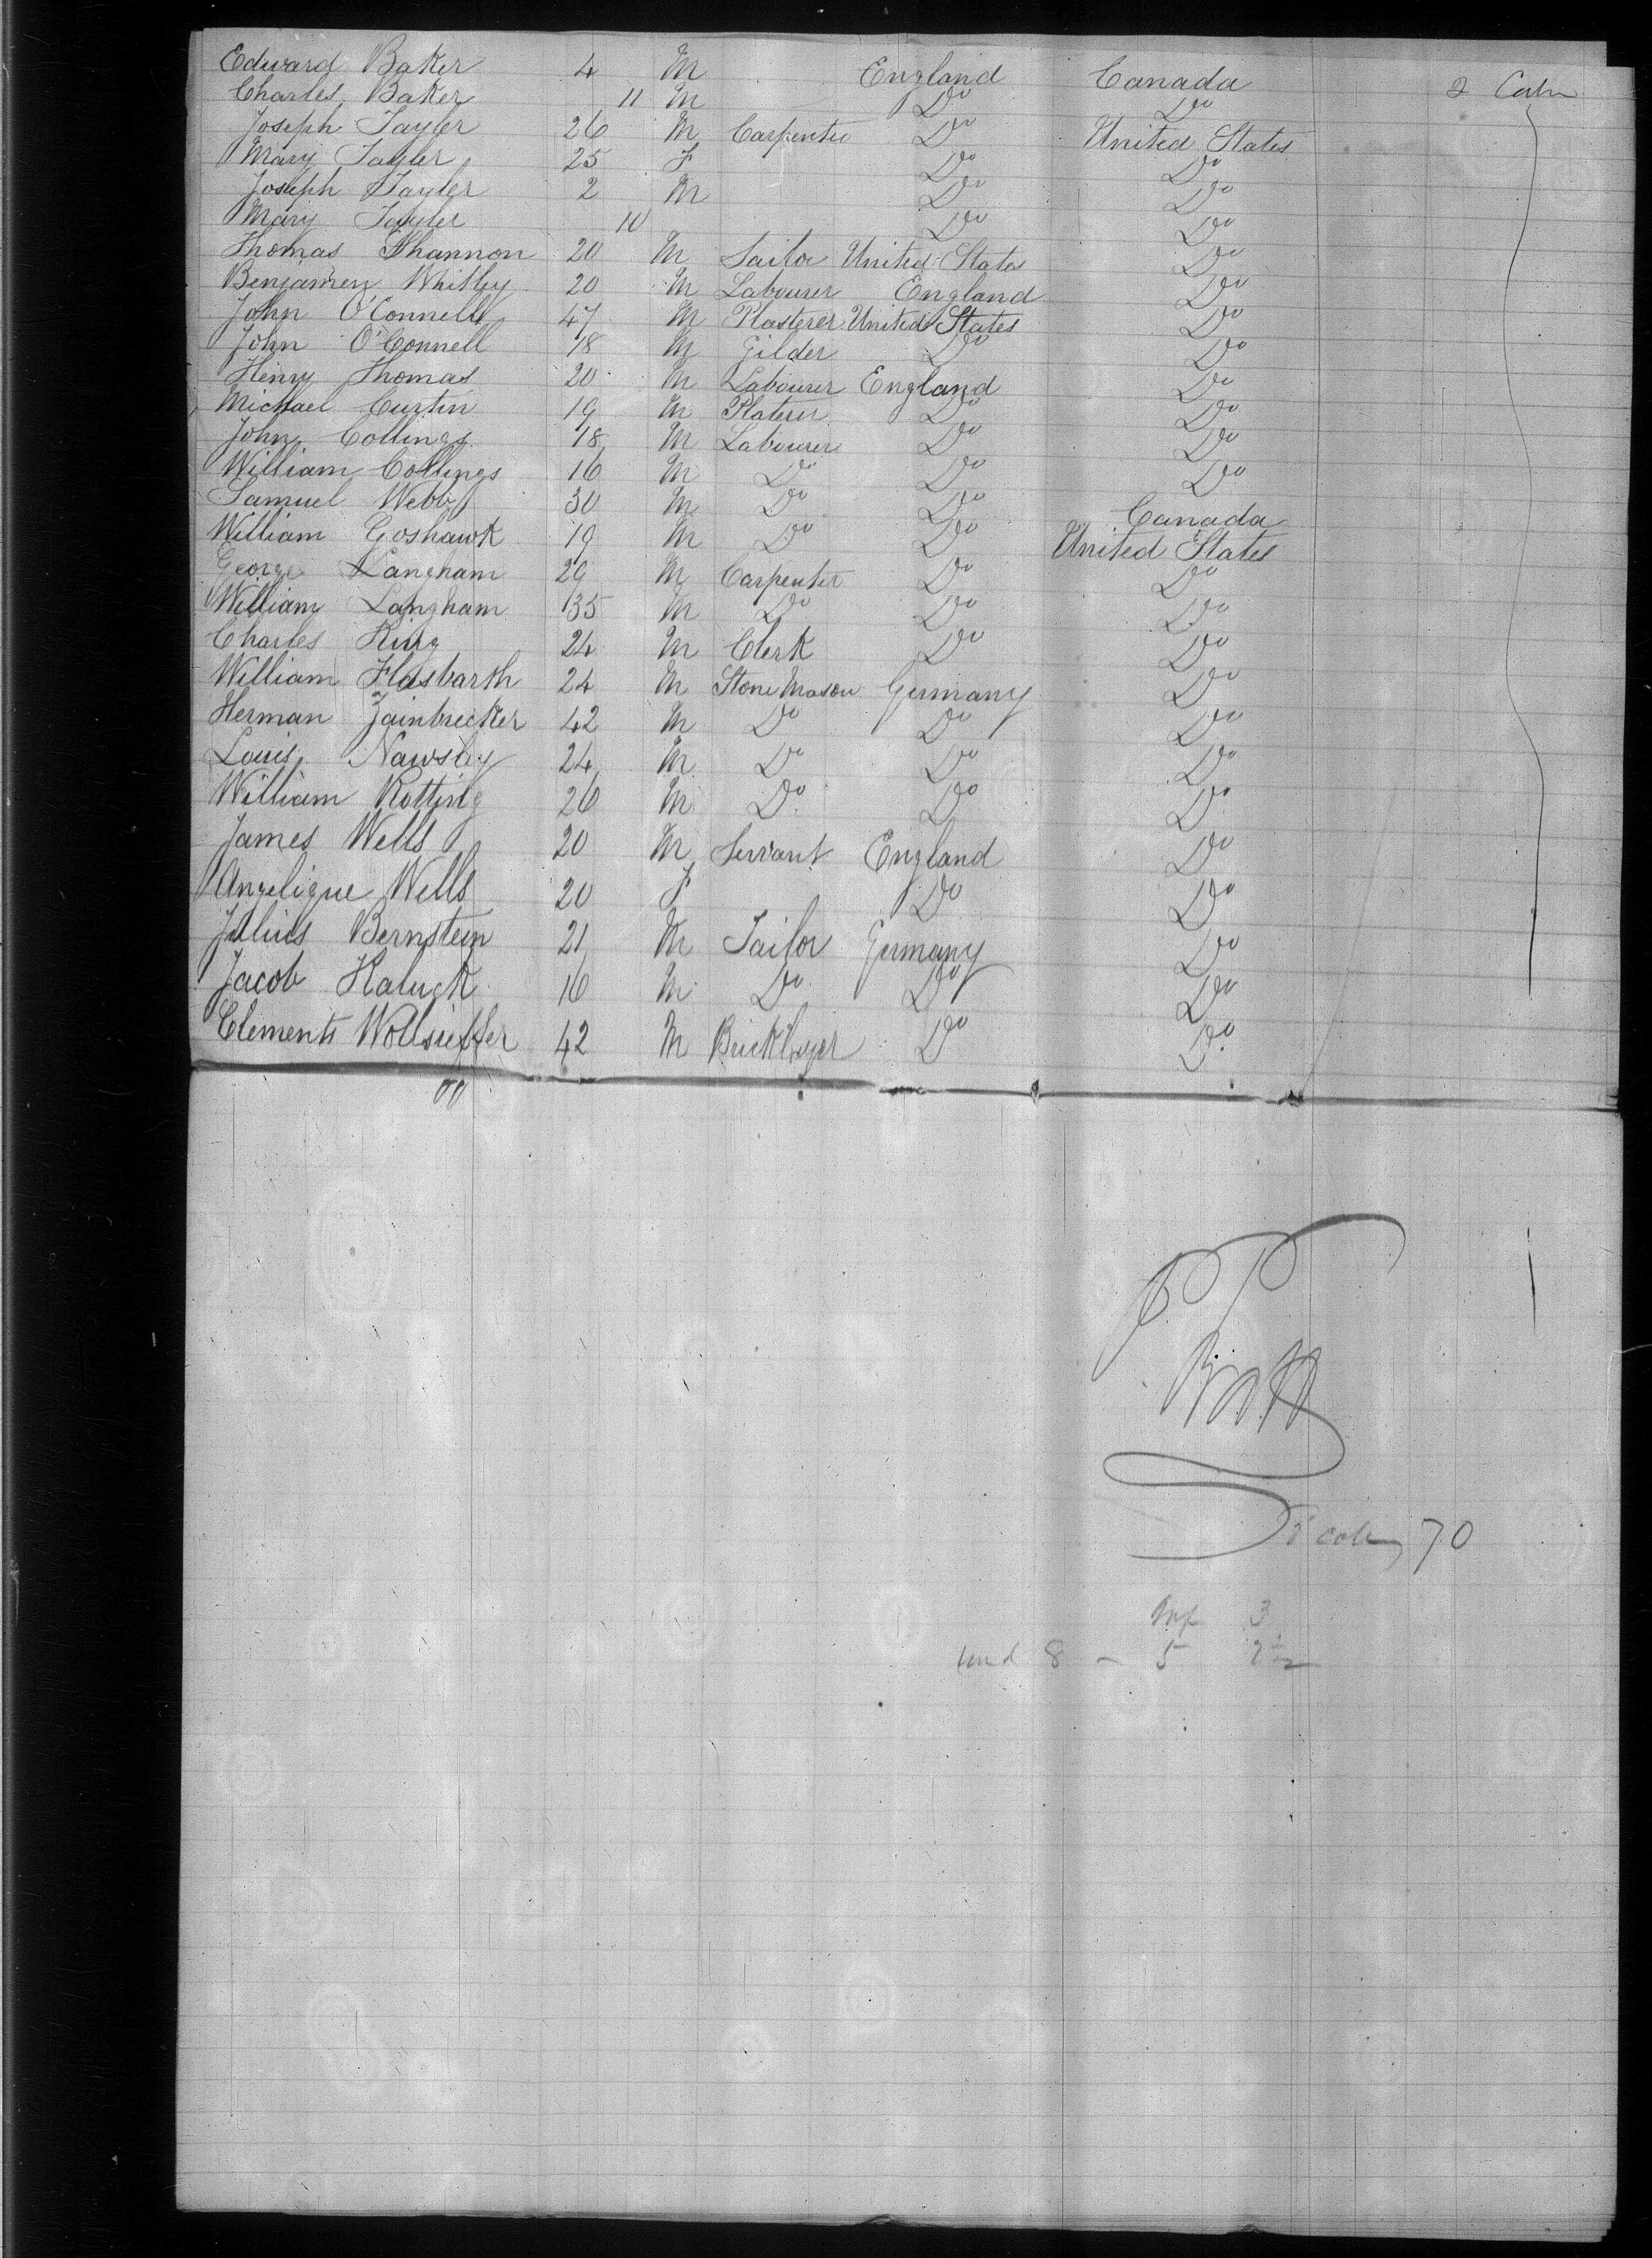 Edward Baker 4 M England Canada 2 Cabn
Charles Baker 11 M Do Do
Joseph Tayler 26 M Carpenter Do United States
Mary Tayler 25 F Do Do
Joseph Tayler 2 M Do Do
Mary Tayler 10 Do Do
Thomas Shannon 20 M Sailor United States Do
Benjamen Whitley 20 M Labourer England Do
John O'Connell 47 M Plasterer United States Do
John O'Connell 18 M Gilder Do Do
Henry Thomas 20 M Labourer England Do
Michael Curtin 19 M Platerer Do Do
John Collings 18 M Labourer Do Do
William Collings 16 M Do Do Do
Samuel Webb 30 M Do Do Canada
William Goshawk 19 M Do Do United States
George Langham 29 M Carpenter Do Do
William Langham 35 M Do Do Do
Charles King 24 M Clerk Do Do
William Flasbarth 24 M Stone Mason Germany Do
Herman Zainbrecker 42 M Do Do Do
Louis Nawsley 24 M Do Do Do
William Rotting 26 M Do Do Do
James Wells 20 M Servant England Do
Angelique Wells 20 F Do Do
Julius Bernstein 21 M Tailor Germany Do
Jacob Haluck 16 M Do Do Do
Clements Wollsieffer 42 M Bricklayer Do Do
70
Inf 3
und 8 - 5 2½